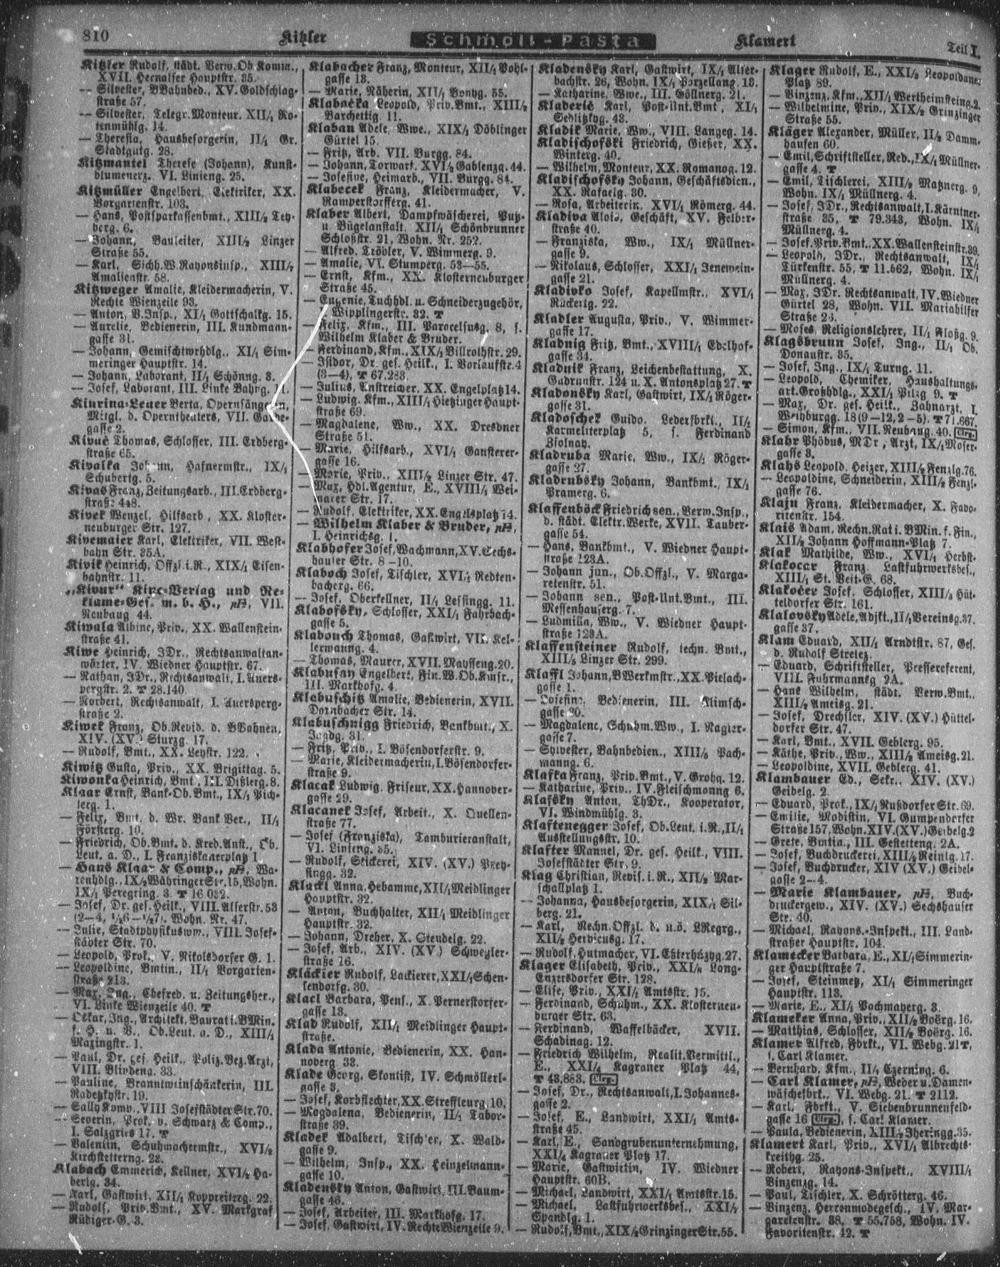 810
Kitzler
Schmoll-Pasta
Klamert
Teil I.
Kitzler Rudolf, städt. Verw. Ob Komm.,
XVII. Hernalser Hauptstr. 35.
— Silvester, BBahnbed., XV. Goldschlag-
straße 57.
— Silvester, Telegr. Monteur. XII/4
tenmühlg. 14.
— Theresia, Hausbesorgerin, II/1 Gr.
Stadtgutg. 28.
Kitzmantel Therese (Johann), Kunst-
blumenerz. VI. Linieng. 25.
Kitzmüller Engelbert, Elektriker, XX.
Vorgartenstr. 103.
— Hans, Postsparkassenbmt., XIII/2
berg. 6.
— Johann, Bauleiter, XIII/2 Linzer
Straße 55.
— Karl, Sichh. W. Rayonsinsp., XIII/2
Amalienstr. 58.
Kitzweger Amalie, Kleidermacherin, V.
Rechte Wienzeile 93.
— Anton, B. Insp., XI/1 Gottschalkg. 15.
— Aurelie, Bedienerin, III. Kundmann-
gasse 31.
— Johann, Gemischtwrhdlg., XI/1 Sim-
meringer Hauptstr. 14.
— Johann, Laborant, II/1 Schönng. 3.
— Josef, Laborant, III. Linke Bahng.
Kiurina-Leuer Berta, Opernsängerin,
Mitgl. d. Operntheaters, VII. Garde-
gasse 2.
Kivac Thomas, Schlosser, III. Erdberg-
straße 65.
Kivalka Johann, Hafnermstr., IX/4
Schubertg. 5.
Kivas Franz, Zeitungsarb., III. Erdberg-
straße 448.
Kivek Wenzel, Hilfsarb., XX. Kloster-
neuburger Str. 127.
Kivemaier Karl, Elektriker, VII. West-
bahn Str. 35A.
Kivik Heinrich, Offzl. i. R., XIX/4 Eisen-
bahnstr. 11.
„Kivur" Kirc-Verlag und Re-
klame-Ges. m. b. H., pH, VII.
Neubaug 44.
Kiwala Albine, Priv., XX. Wallenstein-
straße 41.
Kiwe Heinrich, JDr., Rechtsanwaltan-
wärter, IV. Wiedner Hauptstr. 67.
— Nathan, JDr., Rechtsanwalt, I. Auers-
pergstr. 2. T 28.140.
— Norbert, Rechtsanwalt, I. Auersperg-
straße 2.
Kiwek Franz, Ob. Revid. d. BBahnen,
XIV. (XV.) Sturzg. 17.
— Rudolf, Bmt., XX. Leystr. 122.
Kiwitz Gusta, Priv., XX. Brigittag. 5.
Kiwonka Heinrich, Bmt., III. Dißlerg. 8.
Klaar Ernst, Bank-Ob. Bmt., IX/4 Pich-
lerg. 1.
— Felix, Bmt. d. Wr. Bank Ver., II/1
Försterg. 10.
— Friedrich, Ob. Bmt. d. Kred. Anst., Ob.
Leut. a. D., I. Franziskanerplatz 1.
— Hans Klaar & Comp., pH, Wa-
renhdlg., IX/2 Währinger Str. 15, Wohn.
IX/1 Peregring. 3. T 16 0 2.
— Josef, Dr. ges. Heilk., VIII. Alserstr. 53
(2—4, ½6—½7). Wohn. Nr. 47.
— Julie, Stadtphysikuswwe., VIII. Josef-
städter Str. 70.
— Leopold, Prok., V. Nikolsdorfer G. 1.
— Leopoldine, Bmtin., II/1 Vorgarten-
straße 213.
— Max, Ing., Chefred. u. Zeitungsher.,
VI. Linke Wienzeile 40. T
— Oskar, Ing., Architekt, Baurat i. BMin.
f. H. u. V., Ob. Leut. a. D., XIII/1
Mazingstr. 1.
— Paul, Dr. ges. Heilk., Poliz. Bez. Arzt,
VIII. Blindeng. 33.
— Pauline, Branntweinschänkerin, III.
Radetzkystr. 19.
— Sally Komp., VIII Josefstädter Str. 70.
— Severin, Prok. v. Schwarz & Comp.,
I. Salzgries 17. T
— Valentin, Schuhmachermstr., XVI/2
Kirchstetterng. 28.
Klabach Emmerich, Kellner, XVI/2 Ha-
berlg. 34.
— Karl, Gastwirt, XII/1 Koppreiterg. 22.
— Rudolf, Priv. Bmt., XV. Markgraf
Rüdiger-G. 3.
Klabacher Franz, Monteur, XII/4 Pohl-
gasse 13.
— Marie, Näherin, XII/1 Bonyg. 55.
Klabačka Leopold, Priv. Bmt., XIII/2
Barchettig. 11.
Klaban Adele, Wwe., XIX/1 Döblinger
Gürtel 15.
— Fritz, Arb. VII. Burgg. 84.
— Johann, Torwart, XVI/2 Gablenzg. 44.
— Josefine, Heimarb., VII. Burgg. 84.
Klabecek Franz, Kleidermacher, V.
Ramperstorfferg. 41.
Klaber Albert, Dampfwäscherei, Putz-
u. Bügelanstalt, XII/1 Schönbrunner
Schloßstr. 21, Wohn. Nr. 252.
— Alfred, Trödler, V. Wimmerg. 9.
— Amalie, VI. Stumperg. 53—55.
— Ernst, Kfm., XX. Klosterneuburger
Straße 45.
— Eugenie, Tuchhdl. u. Schneiderzugehör,
I. Wipplingerstr. 32. T
— Felix, Kfm., III. Barcelsusg. 8, s.
Wilhelm Klaber & Bruder.
— Ferdinand, Kfm., XIX/1 Billrothstr. 29.
— Isidor, Dr. ges. Heilk., I. Vorlaufstr. 4
(3—4). T 67.283
— Julius, Anstreicher, XX. Engelsplatz 14.
— Ludwig, Kfm., XIII/1 Hietzinger Haupt-
straße 69.
— Magdalene, Ww., XX. Dresdner
Straße 51.
— Marie, Hilfsarb., XVI/1 Gansterer-
gasse 16.
— Marie, Priv., XIII/2 Linzer Str. 47.
— Max, Hdl. Agentur, E., XVIII/1 Wei-
marer Str. 17.
— Rudolf, Elektriker, XX. Engelsplatz 14.
— Wilhelm Klaber & Bruder, pH,
I. Heinrichsg. 1.
Klabhofer Josef, Wachmann, XV. Sechs-
hauser Str. 8—10.
Klaboch Josef, Tischler, XVI/2 Redten-
bacherg. 66.
— Josef, Oberkellner, II/1 Lessingg. 11.
Klabofsky, Schlosser, XXI/1 Fahrbach-
gasse 5.
Klabouch Thomas, Gastwirt, VII. Kel-
lermanng. 4.
— Thomas, Maurer, XVII. Maysseng. 20.
Klabusay Engelbert, Fin. W. Ob. Kmsr.,
III. Markhofg. 4.
Klabuschitz Amalie, Bedienerin, XVII.
Dornbacher Str. 14.
Klabuschnigg Friedrich, Bankbmt., X.
Jagdg. 31.
— Fritz, Priv., I. Bösendorferstr. 9.
— Marie, Kleidermacherin, I. Bösendorfer-
straße 9.
Klacak Ludwig, Friseur, XX. Hannover-
gasse 29.
Klacanek Josef, Arbeit., X. Quellen-
straße 77.
— Josef (Franziska), Tamburieranstalt,
VI. Linieng. 35.
— Rudolf, Stickerei, XIV. (XV.) Prey-
singg. 32.
Klackl Anna, Hebamme, XII/1 Meidlinger
Hauptstr. 32.
— Anton, Buchhalter, XII/1 Meidlinger
Hauptstr. 32.
— Johann, Dreher, X. Steudelg. 22.
— Josef, Arb., XIV. (XV.) Schweglerstraße 16.
Kläckier Rudolf, Lackierer, XXI/4 Schen-
kendorfg. 30.
Klacl Barbara, Pens., X. Pernerstorfer-
gasse 13.
Klad Rudolf, XII/1 Meidlinger Haupt-
straße.
Klada Antonie, Bedienerin, XX. Han-
noverg. 33.
Klade Georg, Skontist, IV. Schmöllerl-
gasse 3.
— Josef, Korbflechter, XX. Streffleurg. 10.
— Magdalena, Bedienerin, II/2 Tabor-
straße 39.
Kladek Adalbert, Tischler, X. Wald-
gasse 9.
— Wilhelm, Insp., XX. Heinzelmann-
gasse 10.
Kladensky Anton, Gastwirt, III. Baum-
gasse 46.
— Josef, Arbeiter, III. Markhofg. 17.
— Josef, Gastwirt, IV. Rechte Wienzeile 9.
Kladensky Karl, Gastwirt, IX/1 Alser-
bachstr. 26, Wohn. IX/1 Porzellang. 13.
— Katharine, Wwe., III. Göllnerg. 21.
Kladerič Karl, Post-Unt. Bmt., XI/1
Sedlitzkyg. 43.
Kladik Marie, Ww., VIII. Langeg. 14.
Kladischofski Friedrich, Gießer, XX.
Winterg. 40.
— Wilhelm, Monteur, XX. Romanog. 12.
Kladischofsky Johann, Geschäftsdien.,
XX. Rafaelg. 30.
— Rosa, Arbeiterin, XVI/1 Römerg. 44.
Kladiva Alois, Geschäft, XV. Felber-
straße 40.
— Franziska, Ww., IX/1 Müllner-
gasse 9.
— Nikolaus, Schlosser, XXI/1 Jenewein-
gasse 21.
Kladivko Josef, Kapellmstr., XVI/1
Rückertg. 22.
Kladler Augusta, Priv., V. Wimmer-
gasse 17.
Kladnig Fritz, Bmt., XVIII/1 Edelhof-
gasse 34.
Kladnik Franz, Leichenbestattung, X.
Gudrunstr. 124 u. X. Antonsplatz 27. T
Kladonsky Karl, Gastwirt, IX/4 Röger-
gasse 31.
Kladoschek Guido, Lederfbrkt., II/2
Karmeliterplatz 5, s. Ferdinand
Bisolnay.
Kladruba Marie, Ww., IX/1 Röger-
gasse 27.
Kladrubsky Johann, Bankbmt., IX/1
Pramerg. 6.
Klaffenböck Friedrich sen., Verw. Insp.,
d. städt. Elektr. Werke, XVII. Tauber-
gasse 54.
— Hans, Bankbmt., V. Wiedner Haupt-
straße 123A.
— Johann jun., Ob. Offzl., V. Marga-
retenstr. 51.
— Johann sen., Post-Unt. Bmt., III.
Messenhauserg. 7.
— Ludmilla, Ww., V. Wiedner Haupt-
straße 123A.
Klaffensteiner Rudolf, techn. Bmt.,
XIII/2 Linzer Str. 299.
Klaffl Johann, BWerkmstr., XX. Pielach-
gasse 1.
— Josefine, Bedienerin, III. Klimsch-
gasse 30.
— Magdalene, Schuhm. Ww., I. Nagler-
gasse 7.
— Sylvester, Bahnbedien., XIII/2 Pach-
manng. 6.
Klafka Franz, Priv. Bmt., V. Grohg. 12.
— Katharine, Priv., IV. Fleischmanng. 6.
Klafsky Anton, ThDr., Kooperator,
VI. Windmühlg. 3.
Klaftenegger Josef, Ob. Leut. i. R., II/1
Ausstellungsstr. 10.
Klafter Mannel, Dr. ges. Heilk., VIII.
Josefstädter Str. 9.
Klag Christian, Revis. i. R., XII/2 Mar-
schallplatz 1.
— Johanna, Hausbesorgerin, XIX/1 Sil-
berg. 21.
— Karl, Rechn. Offzl. d. n.ö. LRegrg.,
XII/2 Hervicusg. 17.
— Rudolf, Hutmacher, VI. Esterházyg. 27.
Klager Elisabeth, Priv., XXI/2 Lang-
Enzersdorfer Str. 128.
— Elise, Priv., XXI/1 Amtsstr. 15.
— Ferdinand, Schuhm., XX. Klosterneu-
burger Str. 63.
— Ferdinand, Waffelbäcker, XVII.
Schadinag. 12.
— Friedrich Wilhelm, Realit. Vermittl.,
E., XXI/4 Kagraner Platz 44,
T 43.883. Clrg.
— Josef, Dr., Rechtsanwalt, I. Johannes-
gasse 2.
— Josef, E., Landwirt, XXI/1 Amts-
straße 45.
— Karl, E., Sandgrubenunternehmung,
XXI/4 Kagraner Platz 17.
— Marie, Gastwirtin, IV. Wiedner
Hauptstr. 60B.
— Michael, Landwirt, XXI/1 Amtsstr. 15.
— Michael, Lastfuhrwerksbes., XXI/2
Spandlg. 1.
— Rudolf, Bmt., XIX/2 Grinzinger Str. 55.
Klager Rudolf, E., XXI/2 Leopoldauer
Platz 89.
— Vinzenz, Kfm., XII/1 Wertheimsteing. 2.
— Wilhelmine, Priv., XIX/2 Grinzinger
Straße 55.
Kläger Alexander, Müller, II/4 Damm-
haufen 60.
— Emil, Schriftsteller, Red., IX/1 Müllner-
gasse 4. T
— Emil, Tischlerei, XIII/2 Matznerg. 9,
Wohn. IX/1 Müllnerg. 4.
— Josef, JDr., Rechtsanwalt, I. Kärntner-
straße 35, T 79.343, Wohn. IX/1
Müllnerg. 4.
— Josef, Priv. Bmt., XX. Wallensteinstr. 39.
— Leopold, JDr., Rechtsanwalt, IX/1
Türkenstr. 55, T 11.662, Wohn. IX/1
Müllnerg. 4.
— Max, JDr. Rechtsanwalt, IV. Wiedner
Gürtel 28, Wohn. VII. Mariahilfer
Straße 23.
— Moses, Religionslehrer, II/1 Floßg. 9.
Klagsbrunn Josef, Ing., II/1 Ob.
Donaustr. 35.
— Josef, Ing., IX/4 Turng. 11.
— Leopold, Chemiker, Haushaltungs-
art. Großhdlg., XX/1 Pilzg. 9. T
— Max, Dr. ges. Heilk., Zahnarzt, I.
Weihburgg. 18 (9—12, 2—5). T 71.667.
— Simon, Kfm., VII. Neubaug. 40. Clrg.
Klahr Phöbus, MDr., Arzt, IX/4 Moser-
gasse 3.
Klahs Leopold, Heizer, XIII/2 Fenzlg. 76.
— Leopoldine, Schneiderin, XIII/2 Fenzl-
gasse 76.
Klain Franz, Kleidermacher, X. Favo-
ritenstr. 154.
Klais Adam, Rechn. Rat i. BMin. f. Fin.,
XII/2 Johann Hoffmann-Platz 7.
Klak Mathilde, Ww., XVI/1 Herbst-
Klakocar Franz, Lastfuhrwerksbes.,
XIII/1 St. Veit-G. 68.
Klakočer Josef, Schlosser, XIII/2 Hüt-
teldorfer Str. 161.
Klalovsky Adele, Adjkt., II/2 Vereinsg. 37.
gasse 37.
Klam Eduard, XII/1 Arndtstr. 87, Ges.
d. Rudolf Strelez.
— Eduard, Schriftsteller, Pressereferent,
VIII. Fuhrmanng. 2A.
— Hans Wilhelm, städt. Verw. Bmt.,
XIII/4 Ameisg. 21.
— Josef, Drechsler, XIV. (XV.) Hüttel-
dorfer Str. 47.
— Karl, Bmt., XVII. Geblerg. 95.
— Käthe, Priv. Bmt., XIII/4 Ameisg. 21.
— Leopoldine, XVII. Geblerg. 41.
Klambauer Ed., Sekr., XIV. (XV.)
Geibelg. 2.
— Eduard, Prok., IX/1 Nußdorfer Str. 69.
— Emilie, Modistin, VI. Gumpendorfer
Straße 157, Wohn. XIV. (XV.) Geibelg. 2
— Grete, Bmtin., III. Gestetteng. 2A.
— Josef, Buchdruckerei, XIII/4 Reinlg. 17.
— Josef, Buchdrucker, XIV (XV.) Geibel-
gasse 2—4.
— Marie Klambauer, pH, Buch-
druckergew., XIV. (XV.) Sechshauser
Str. 40.
— Michael, Rayons-Inspekt., III. Land-
straßer Hauptstr. 104.
Klamecker Barbara, E., XI/1 Simmerin-
ger Hauptstraße 7.
— Josef, Steinmetz, XI/1 Simmeringer
Hauptstr. 113.
— Marie, E., XI/1 Pachmayerg. 3.
Klameker Anna, Priv., XII/2 Boërg. 16.
— Matthias, Schlosser, XII/2 Boërg. 16.
Klamer Alfred, Fbrkt., VI. Webg. 21 T,
s. Carl Klamer.
— Bernhard, Kfm., II/4 Czerning. 6.
— Carl Klamer, pH, Weber u. Damen-
wäschefbrk., VI. Webg. 21. T 2112.
— Karl, Fbrkt., V. Siebenbrunnenfeld-
gasse 16 Clrg., s. Carl Klamer.
— Paula, Bedienerin, XIII/2 Iheringg. 35.
Klamert Karl, Priv., XVI/1 Albrechts-
kreithg. 25.
— Robert, Rayons-Inspekt., XVIII/1
Vinzenzg. 14.
— Paul, Tischler, X. Schrötterg. 46.
— Vinzenz, Herrenmodegesch., IV. Mar-
garetenstr. 38, T 55.758, Wohn. IV.
Favoritenstr. 42. T